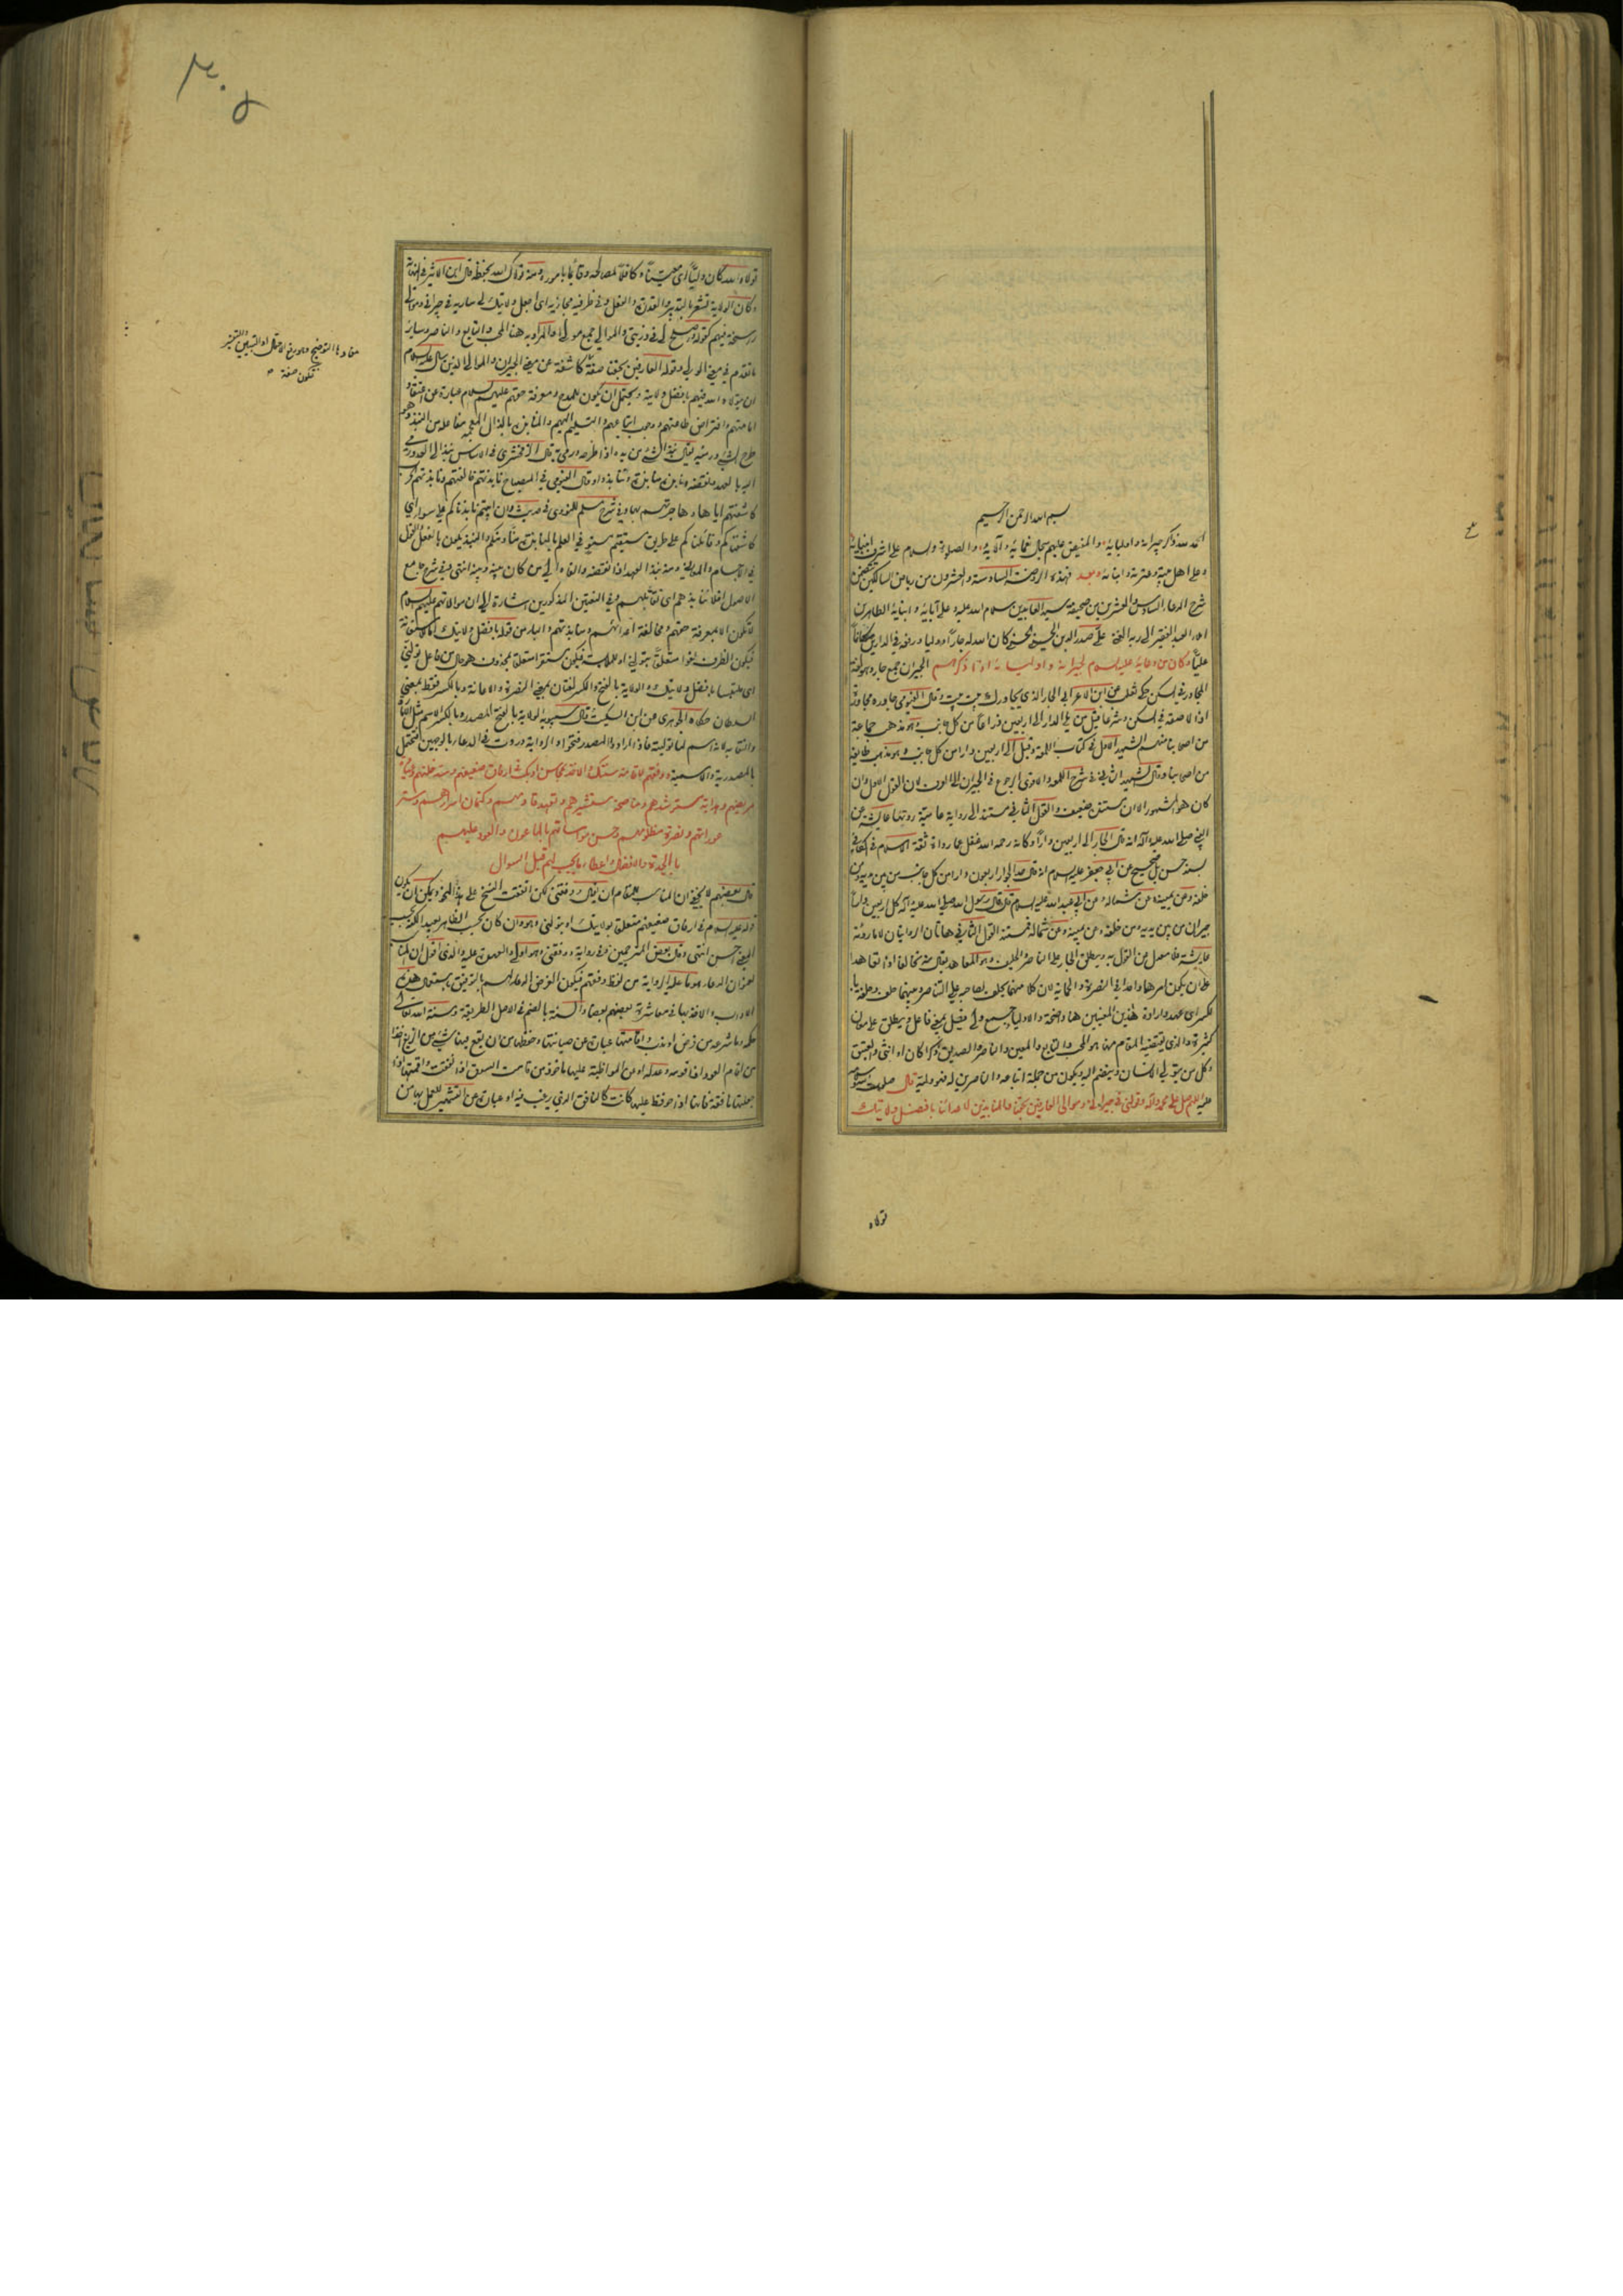 بسم الله الرحمن الرحيم
الحمد لله ذاكر جيرانه واوليائه والمفيض عليهم سجال نعمائه وآلائه والصلوة والسلام على اشرف انبيائه
وعلى اهل بيته وعترته وابنائه وبعد فهذه الروضة السادسة والعشرون من رياض السالكين تتضمن
شرح الدعاء السادس والعشرين من صحيفة سيد العابدين سلام الله عليه وعلى آبائه وابنائه الطاهرين
املاء العبد الفقير الى ربه الغني على صدر الدين الحسيني الحسني كان الله له جارا ووليا ورفعه في الدارين مكانا
عليا وكان من دعائه عليه السلام لجيرانه واوليائه اذا ذكرهم الجيران جمع جار وهو
المجاور في السكن حكى ثعلب عن ابن الاعرابي الجار الذي يجاورك بيت بيت وقال الفيومي جاوره مجاورة
اذا لاصقه في السكن وشرعا قيل من يلي الدار الى اربعين ذراعا من كل جانب وهو مذهب جماعة
من اصحابنا منهم الشهيد الاول في كتاب اللمعة وقيل الى اربعين دارا من كل جانب وهو مذهب طائفة
من اصحابنا وقال الشهيد الثاني في شرح اللمعة والاقوى الرجوع في الجيران الى العرف لان القول الاول وان
كان هو المشهور الا ان مستنده ضعيف والقول الثاني مستند الى رواية عامية روتها عايشة عن
النبي صلى الله عليه وآله انه قال الجار الى اربعين دارا وكانه رحمه الله غفل عما رواه ثقة الاسلام في الكافي
بسند حسن بل صحيح عن ابي جعفر عليه السلام انه قال حد الجوار اربعون دارا من كل جانب من بين يديه ومن
خلفه وعن يمينه وعن شماله وعن ابي عبد الله عليه السلام قال قال رسول الله صلى الله عليه وآله كل اربعين دارا
جيران من بين يديه ومن خلفه وعن يمينه وعن شماله فمستند القول الثاني هاتان الروايتان لا ما روته
عايشة فالعمل من القول به ويطلق الجار على الناصر والحليف وهو المعاهد يقال منه تحالفا اذا تعاهدا
على ان يكون امرهما واحدا في النصرة والحماية لان كلا منهما يحلف لصاحبه على التناصر وبينهما حلف وحلفة با
لكسر اى عهد وارادة هذين المعنيين هنا واضحة والاولياء جمع ولي فعيل بمعنى فاعل ويطلق على معان
كثيرة والذي يقتضيه المقام منها هو المحب والتابع والمعين والناصر والصديق ذكرا كان او انثى والعتيق
وكل من يتولى الانسان وينضم اليه ويكون من جملة اتباعه والناصرين له فهو وليه قال صلوات الله
عليه اللهم صل على محمد وآله وتولني في جيراني وموالي العارفين بحقنا والمنابذين لاعدائنا بافضل ولايتك
تولاه
تولاه الله كان وليا اى معينا وكافلا لمصالحه وقائما باموره ومنه تولاك الله بحفظه قال ابن الاثير في النهاية
وكان الولاية تشعر بالتدبير والقدرة والفعل وفي ظرفية مجازية اى اجعل ولايتك لي سارية في جيراني وموالي
راسخة فيهم كقوله واصلح لي في ذريتي والموالي جمع مولى والمراد به هنا المحب والتابع والناصر وساير
ما تقدم في معنى الولي وقوله العارفين بحقنا صفة كاشفة عن معنى الجيران والموالي الذين سأل عليه السلام
ان يتولاه الله فيهم بافضل ولايته ويحتمل ان يكون للمدح ومعرفة حقهم عليهم السلام عبارة عن اعتقاد
امامتهم وافتراض طاعتهم ووجوب اتباعهم والتسليم اليهم والمنابذة بالذال المعجمة مفاعلة من النبذ وهو
طرح الشئ ورميه يقال نبذ الشئ من يده اذا طرحه ورمى به قال الزمخشري في الاساس نبذ الى العدو رمى
اليه بالعهد ونقضه ونابذه منابذة وتنابذوا وقال الفيومي في المصباح نابذتهم خالفتهم ونابذتهم الحرب
كاشفتهم اياها وجاهرتهم بها وفي شرح مسلم للنووي في حديث وان ابيتم نابذناكم على سواء اى
كاشفناكم وقاتلناكم على طريق مستقيم مستو في العلم بالمنابذة منا ومنكم والنبذ يكون بالفعل والقول
في الاجسام والمعاني ومنه نبذ العهد اذا نقضه والقاه الى من كان بينه وبينه انتهى وفي شرح جامع
الاصول افلا ننابذهم اى نقاتلهم وفي النعتين المذكورين اشارة الى ان موالاتهم عليهم السلام
لا تكون الا بمعرفة حقهم ومخالفة اعدائهم ومنابذتهم والباء من قوله بافضل ولايتك للاستعانة
فيكون الظرف لغوا متعلقا بتولني او للملابسة فيكون مستقرا متعلقا بمحذوف هو حال من فاعل تولني
اى متلبسا بافضل ولايتك والولاية بالفتح والكسر لغتان بمعنى النصرة والاعانة وبالكسر فقط بمعنى
السلطان حكاه الجوهري عن ابن السكيت وقال سيبويه الولاية بالفتح المصدر وبالكسر الاسم مثل الامارة
والنقابة لانه اسم لما توليته فاذا ارادوا المصدر فتحوا والرواية وردت في الدعاء بالوجهين فتحتمل
بالمصدرية والاسمية ووفقهم لاقامة سنتك والاخذ بمحاسن ادبك في ارفاق ضعيفهم وسد خلتهم وعيادة
مريضهم وهداية مسترشدهم ومناصحة مستشيرهم وتعهد قادمهم وكتمان اسرارهم وستر
عوراتهم ونصرة مظلومهم وحسن مواساتهم بالماعون والعود عليهم
بالجدة والافضال واعطاء ما يجب لهم قبل السوال
قال بعضهم لا يخفى ان المناسب للمقام ان يقال ووفقني لكن اتفقت النسخ على هذا النحو ويمكن ان يكون
قوله عليه السلام في ارفاق ضعيفهم متعلقا بولايتك او بتولني وهو وان كان بحسب الظاهر بعيدا لكنه بحسب
المعنى احسن انتهى وقال بعض المترجمين وفي رواية ووفقني وهو اولى والعهدة عليه والذي اقول ان المناسب
لعنوان الدعاء هو ما عليه الرواية من لفظ وفقهم فيكون الغرض الدعاء لهم بالتوفيق باستعمال هذه
الاداب والاخذ بها في معاشرة بعضهم بعضا والسنة بالضم في الاصل الطريقة وسنة الله تعالى
حكمه وما شرعه من فرض او ندب واقامتها عبارة عن صيانتها وحفظها من ان يقع فيها شئ من الزيغ اخذا
من اقام العود اذا قومه وعدله او عن المواظبة عليها ماخوذ من قامت السوق اذا نفقت واقمتها اذا
جعلتها نافقة فانها اذا حوفظ عليها كانت كالنافق الذي يرغب فيه او عبارة عن التشمير للعمل بها من